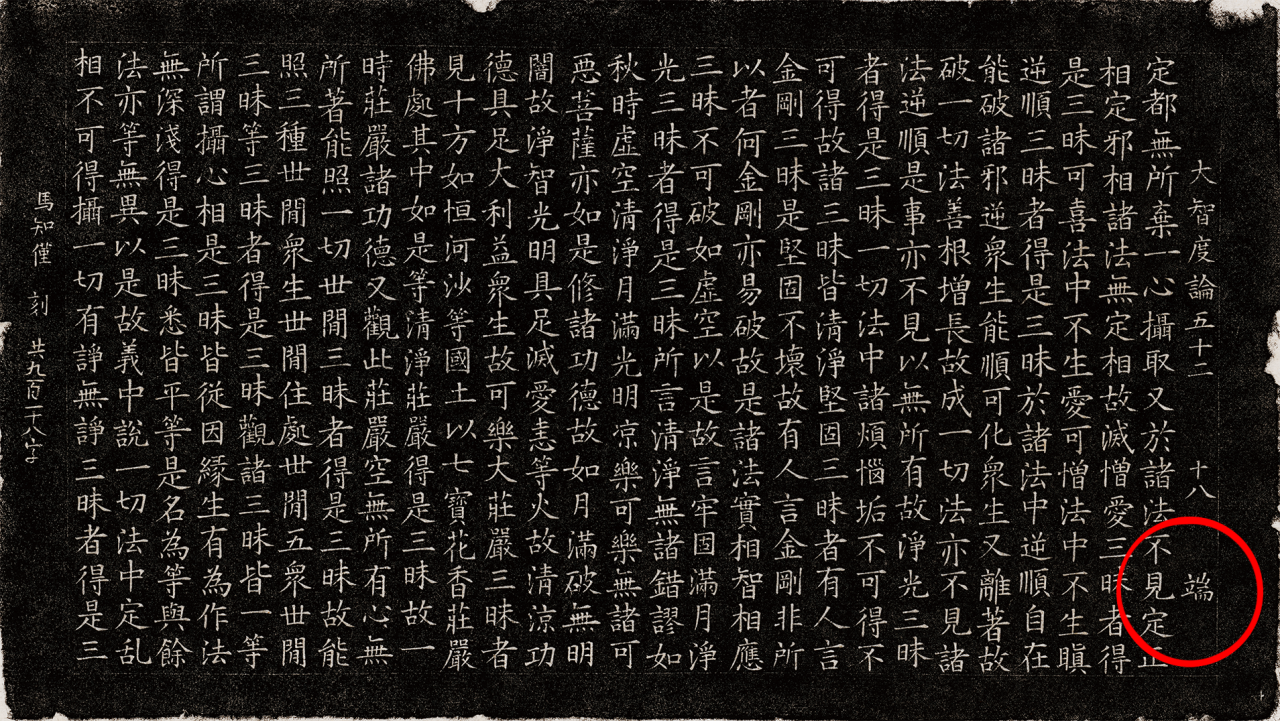 大智度論五十二 十八 端
定都無所棄一心攝取又於諸法不見定正
相定邪相諸法無定相故滅憎愛三昧者得
是三昧可喜法中不生愛可憎法中不生瞋
逆順三昧者得是三昧於諸法中逆順自在
能破諸邪逆衆生能順可化衆生又離著故
破一切法善根增長故成一切法亦不見諸
法逆順是事亦不見以無所有故淨光三昧
者得是三昧一切法中諸煩惱垢不可得不
可得故諸三昧皆清淨堅固三昧者有人言
金剛三昧是堅固不壞故有人言金剛非所
以者何金剛亦易破故是諸法實相智相應
三昧不可破如虛空以是故言牢固滿月淨
光三昧者得是三昧所言清淨無諸錯謬如
秋時虛空清淨月滿光明凉樂可樂無諸可
惡菩薩亦如是修諸功德故如月滿破無明
闇故淨智光明具足滅愛恚等火故清涼功
德具足大利益衆生故可樂大莊嚴三昧者
見十方如恒河沙等國土以七寶花香莊嚴
佛處其中如是等清淨莊嚴得是三昧故一
時莊嚴諸功德又觀此莊嚴空無所有心無
所著能照一切世間三昧者得是三昧故能
照三種世間衆生世間住處世間五衆世間
三昧等三昧者得是三昧觀諸三昧皆一等
所謂攝心相是三昧皆從因緣生有為作法
無深淺得是三昧悉皆平等是名為等與餘
法亦等無異以是故義中說一切法中定乱
相不可得攝一切有諍無諍三昧者得是三
馬知僅 刻 共九百二十八字